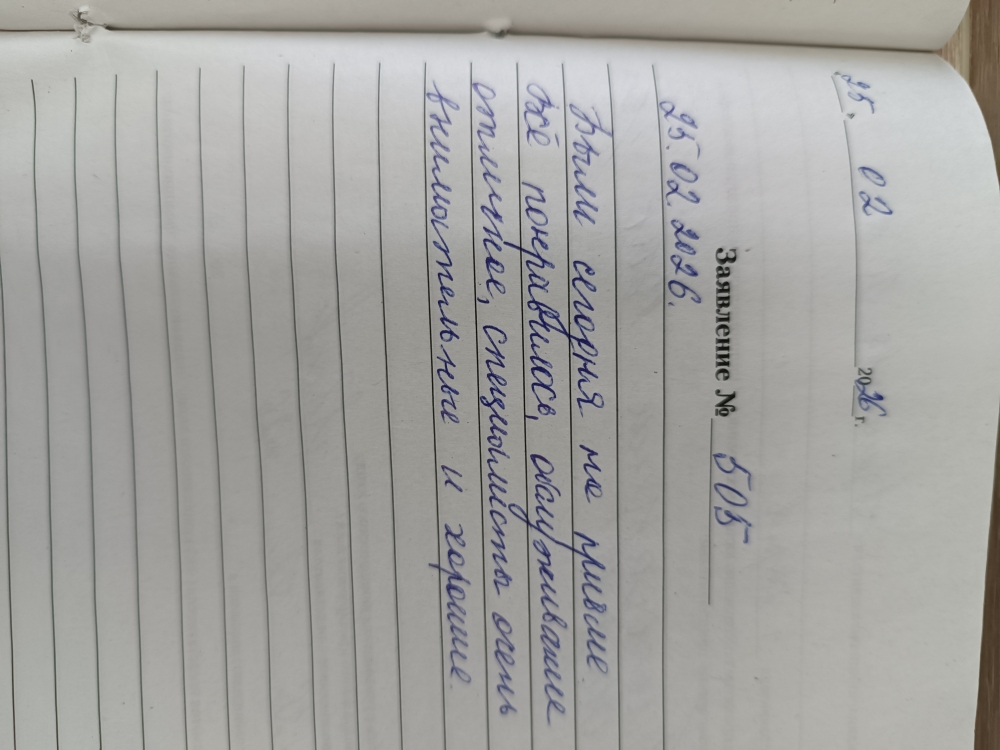 25. 02 2026 г.
Заявление № 505
25.02.2026.
Были сегодня на приёме.
Всё понравилось, обслуживание
отличное, специалисты очень
внимательные и хорошие.